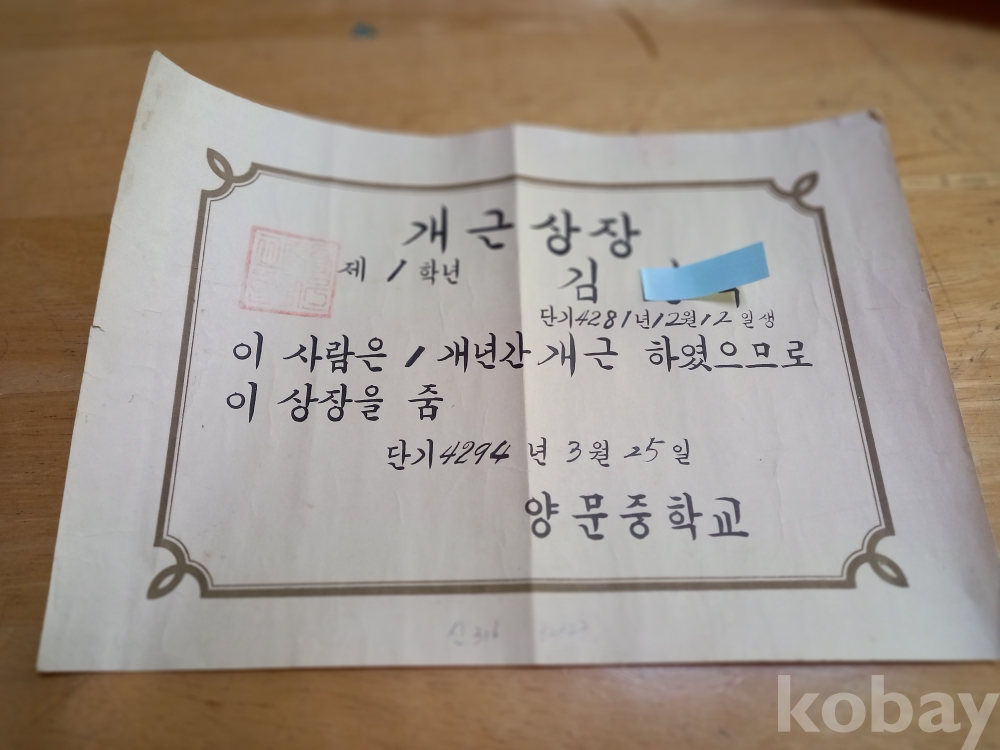 개근상장
제 1 학년
김
단기4281년12월12일생
이 사람은 1 개년간 개근 하였으므로
이 상장을 줌
단기4294년 3월 25일
양문중학교
kobay